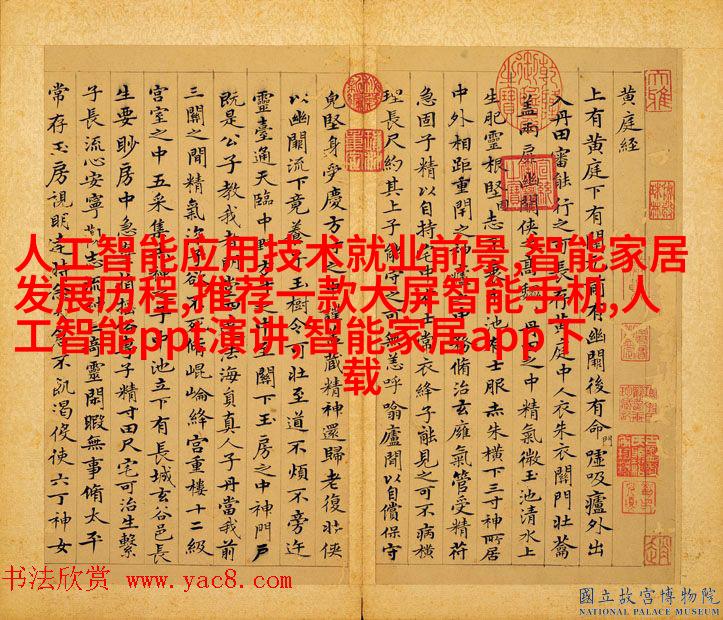 黄庭經
上有黄庭下有關元前有幽闕後有命門噓吸廬外出
入丹田審能行之可長存黄庭中人衣朱衣關門壯蘥
盖兩扉幽闕俠之高巍丹田之中精氣微玉池清水上
生肥靈根堅志不衰中池有士服赤朱横下三寸神所居
中外相距重閇之神廬之中務脩治玄廱氣管受精符
急固子精以自持宅中有士常衣絳子能見之可不病横
理長尺約其上子能守之可無恙呼噏廬間以自償保守
皃堅身受慶方寸之中謹盖藏精神還歸老復壯俠
以幽闕流下竟養子玉樹令可壯至道不煩不旁迕
靈臺通天臨中野方寸之中至關下玉房之中神門戶
既是公子教我者明堂四達法海員真人子丹當我前
三關之間精氣深子欲不死脩崐崘絳宮重樓十二級
宮室之中五采集赤神之子中池立下有長城玄谷邑長
生要眇房中急棄捐淫欲專子精寸田尺宅可治生繫
子長流心安寧觀志流神三奇靈閑暇無事脩太平
常存玉房視明達時念太倉不飢渴役使六丁神女
人工智能应用技术就业前景,智能家居
发展历程,推荐一款大屏智能手机,人
工智能ppt演讲,智能家居app下
载
书法欣赏 www.yac8.com
國立故宮博物院
NATIONAL PALACE MUSEUM